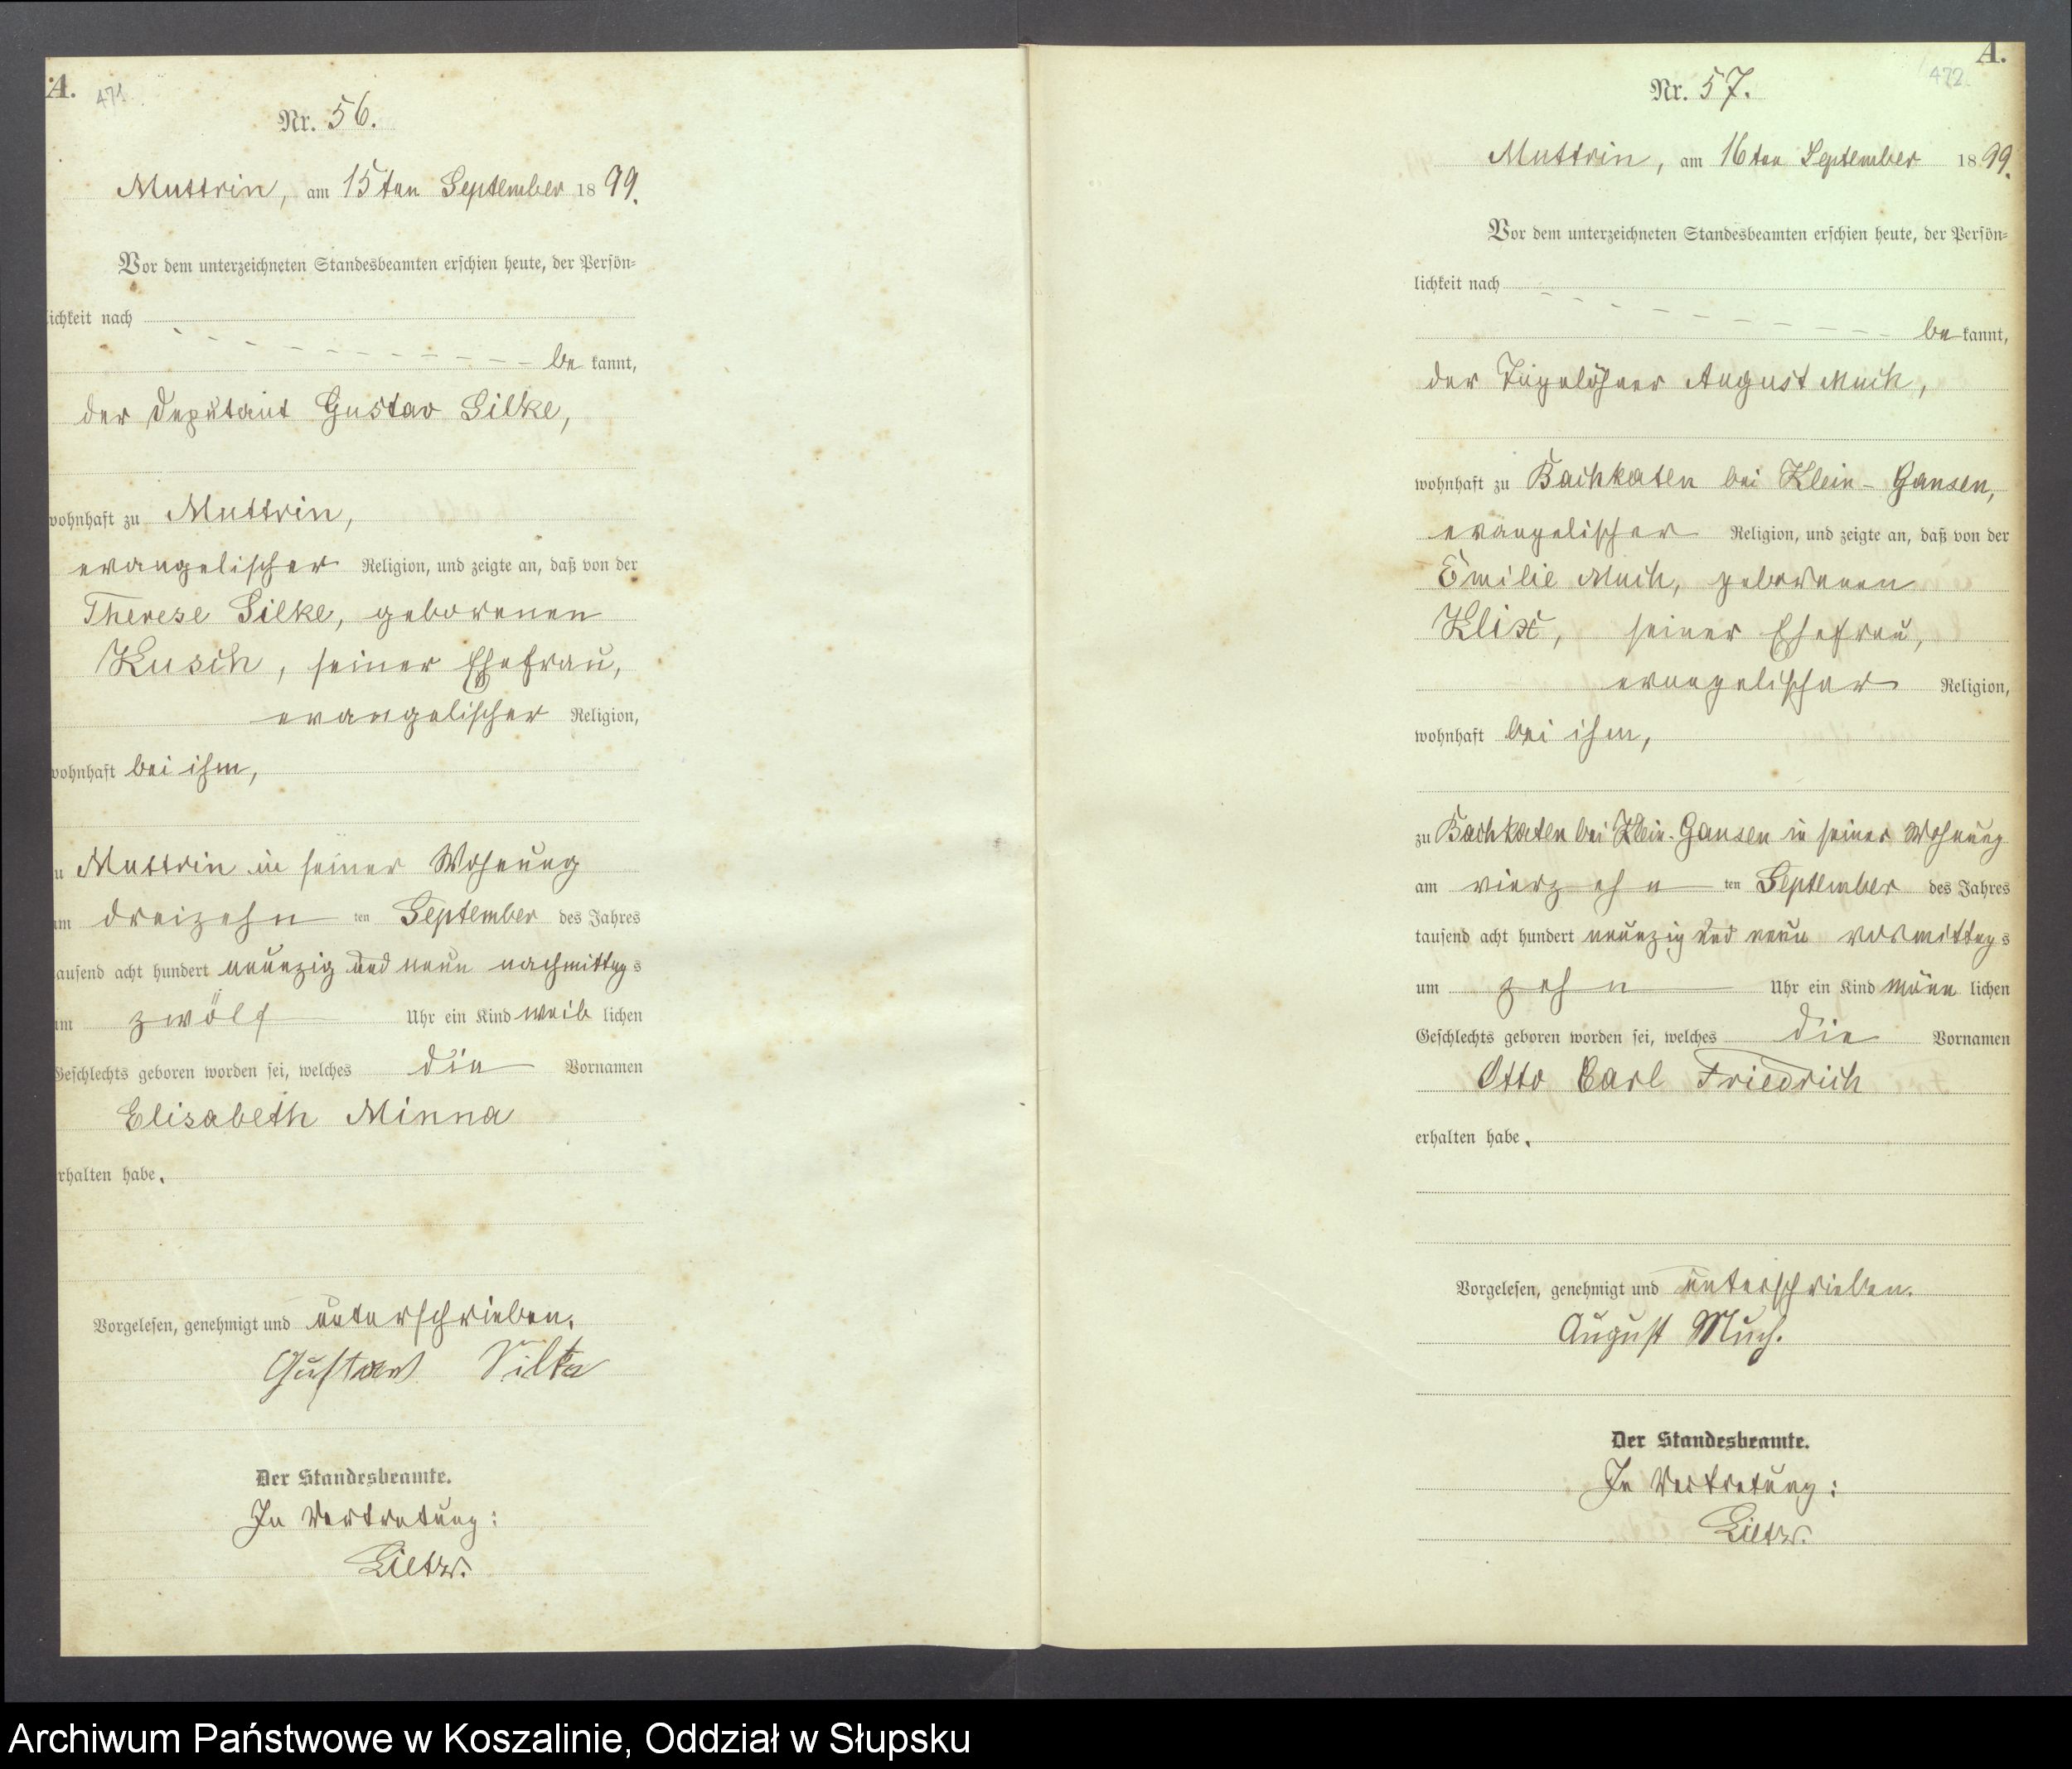 A.
471
Nr. 56.
Muttrin, am 15ten September 1899.
Vor dem unterzeichneten Standesbeamten erschien heute, der Persön=
lichkeit nach
be kannt,
der Deputant Gustav Silke,
wohnhaft zu Muttrin,
evangelischer Religion, und zeigte an, daß von der
Therese Silke, geborenen
Kusch, seiner Ehefrau,
evangelischer Religion,
wohnhaft bei ihm,
zu Muttrin in seiner Wohnung
am dreizehn ten September des Jahres
tausend acht hundert neunzig und neun nachmittags
um zwölf Uhr ein Kind weib lichen
Geschlechts geboren worden sei, welches die Vornamen
Elisabeth Minna
erhalten habe.
Vorgelesen, genehmigt und unterschrieben.
Gustav Silke
Der Standesbeamte.
In Vertretung:
Lietzw.
A.
472.
Nr. 57.
Muttrin, am 16ten September 1899.
Vor dem unterzeichneten Standesbeamten erschien heute, der Persön=
lichkeit nach
be kannt,
der Tagelöhner August Much,
wohnhaft zu Bachkaten bei Klein-Gansen,
evangelischer Religion, und zeigte an, daß von der
Emilie Much, geborenen
Klix, seiner Ehefrau,
evangelischer Religion,
wohnhaft bei ihm,
zu Bachkaten bei Klein-Gansen in seiner Wohnung
am vierzehn ten September des Jahres
tausend acht hundert neunzig und neun vormittags
um zehn Uhr ein Kind männ lichen
Geschlechts geboren worden sei, welches die Vornamen
Otto Carl Friedrich
erhalten habe.
Vorgelesen, genehmigt und unterschrieben.
August Much.
Der Standesbeamte.
In Vertretung:
Lietzw.
Archiwum Państwowe w Koszalinie, Oddział w Słupsku